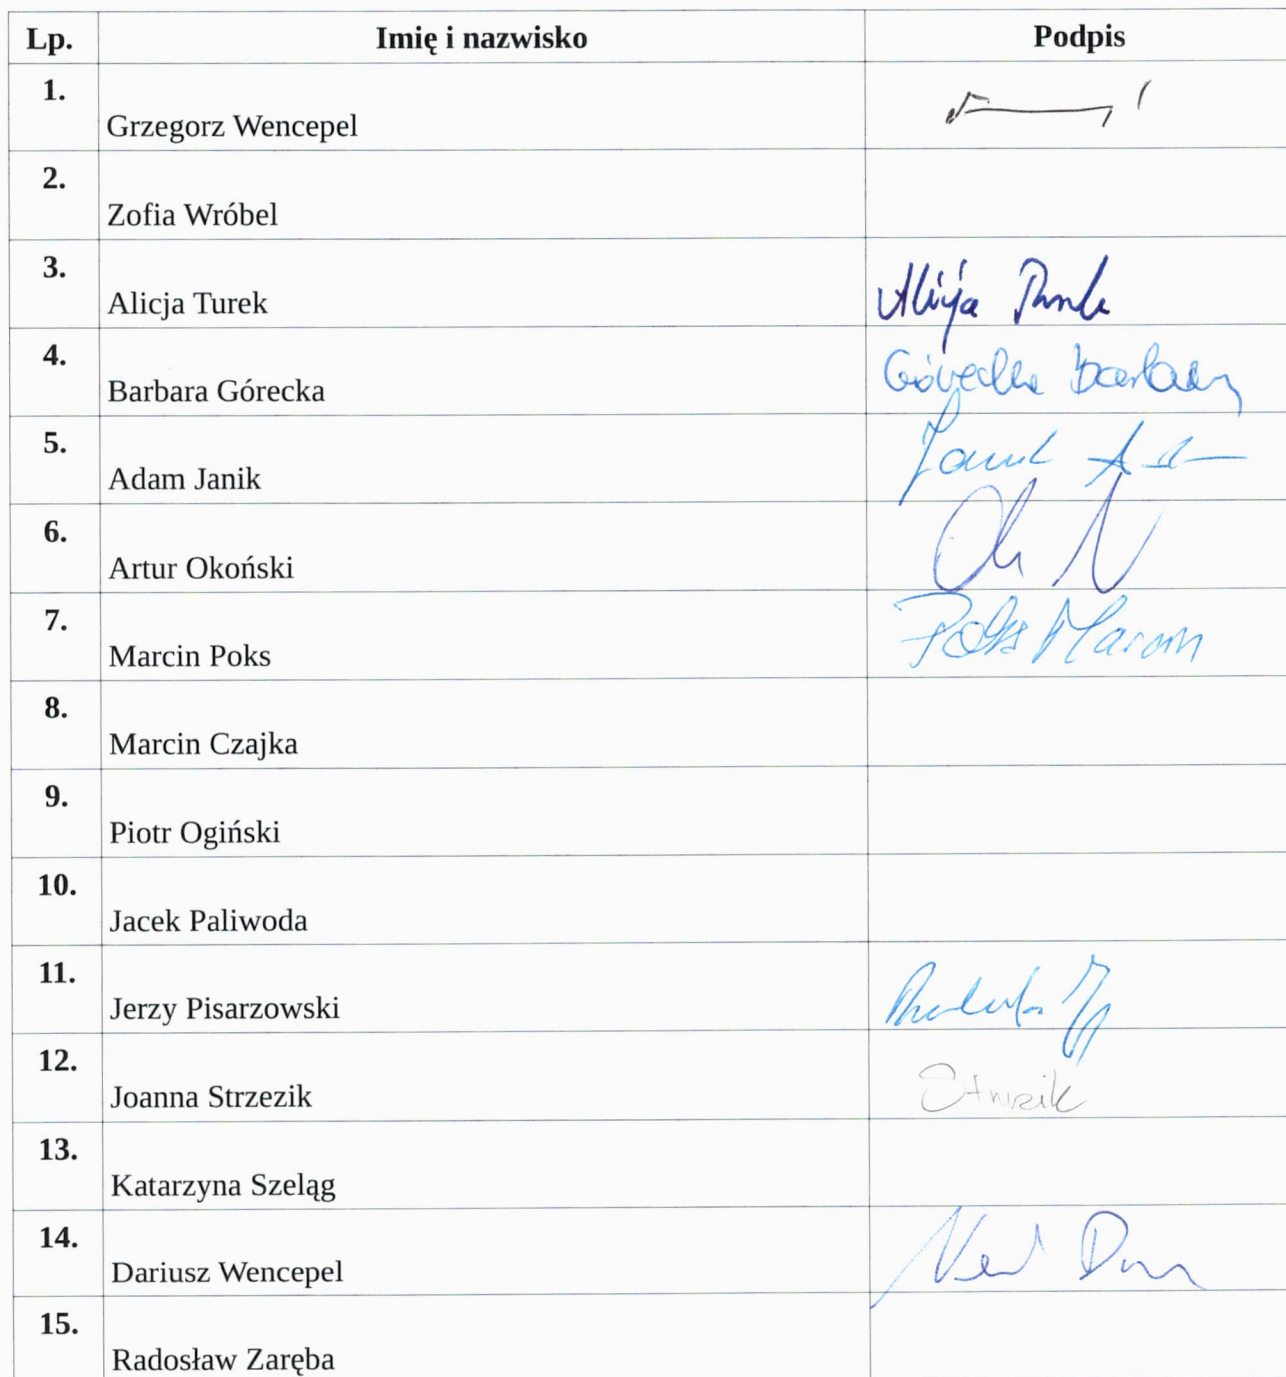 Lp. Imię i nazwisko Podpis
1.
Grzegorz Wencepel
2.
Zofia Wróbel
3.
Alicja Turek Alicja Turek
4.
Barbara Górecka Górecka Barbara
5.
Adam Janik Janik
6.
Artur Okoński
7.
Marcin Poks Poks Marcin
8.
Marcin Czajka
9.
Piotr Ogiński
10.
Jacek Paliwoda
11.
Jerzy Pisarzowski
12.
Joanna Strzezik Strzezik
13.
Katarzyna Szeląg
14.
Dariusz Wencepel
15.
Radosław Zaręba